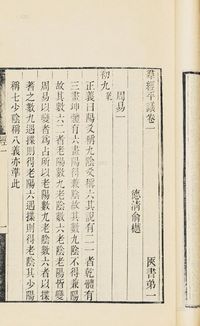 羣經平議卷一
德清俞樾
書第一
周易一
初九 乾
正義曰陽爻稱九陰爻稱六其說有二一者乾體有
三畫坤體有六畫陽得兼陰故其數九陰不得兼陽
故其數六二者老陽數九老陰數六老陰老陽皆變
周易以變者爲占所以老陽數九老陰數六者以揲
蓍之數九遇揲則得老陽六遇揲則得老陰其少陽
稱七少陰稱八義亦準此
經一